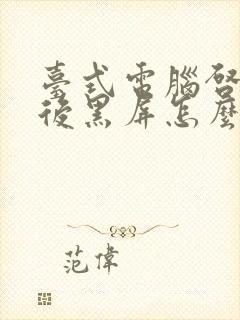 臺式電腦啓
後黑屏怎麼
范偉